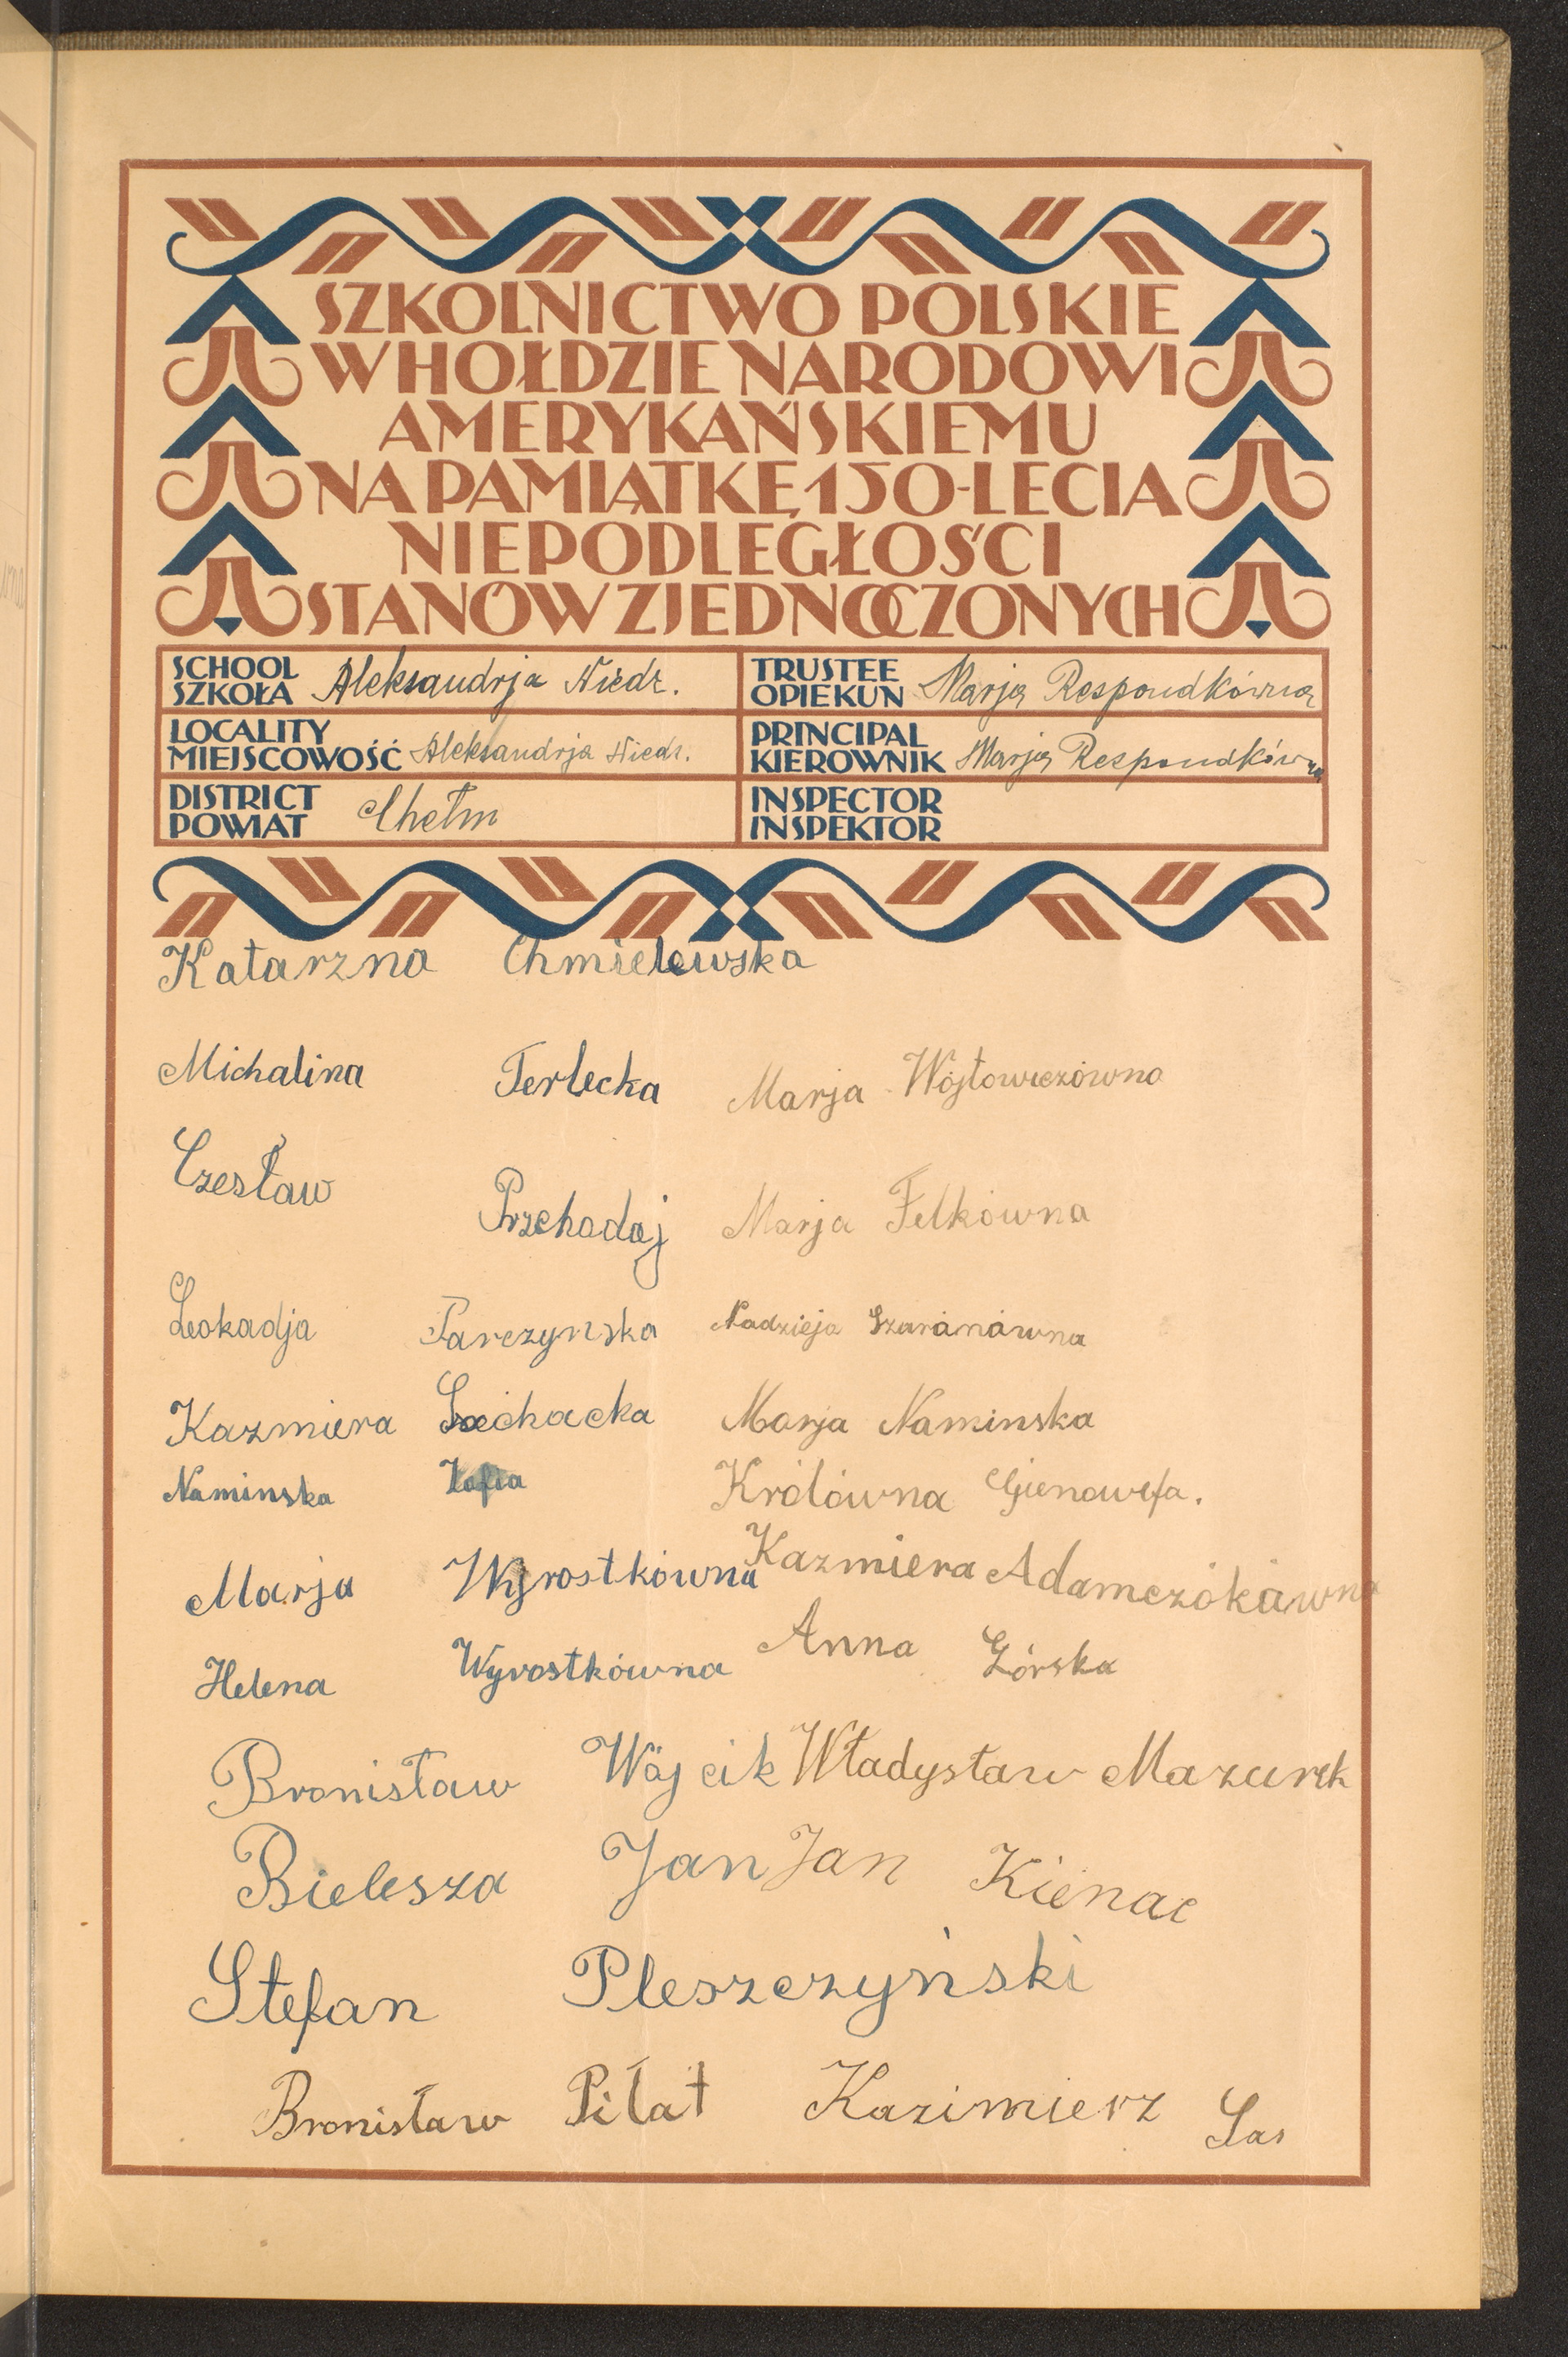 SZKOLNICTWO POLSKIE
W HOŁDZIE NARODOWI
AMERYKAŃSKIEMU
NA PAMIĄTKĘ 150-LECIA
NIEPODLEGŁOŚCI
STANÓW ZJEDNOCZONYCH
SCHOOL
SZKOŁA Aleksandrja Niedz.
TRUSTEE
OPIEKUN Marja Respondkówna
LOCALITY
MIEJSCOWOŚĆ Aleksandrja Niedz.
PRINCIPAL
KIEROWNIK Marja Respondkówna
DISTRICT
POWIAT Chełm
INSPECTOR
INSPEKTOR
Katarzna Chmielewska
Michalina Terlecka Marja Wójtowiczówna
Czesław Przchodaj Marja Felkówna
Leokadja Parczynska Nadzieja Szaranówna
Kazmiera Lachacka Marja Naminska
Naminska Zofia Królówna Gienowefa.
Marja Wyrostkówna Kazmiera Adamczókówna
Helena Wyrostkówna Anna Górska
Bronisław Wójcik Władysław Mazurek
Bielesza Jan Jan Kienac
Stefan Pleszczyński
Bronisław Piłat Kazimierz Las